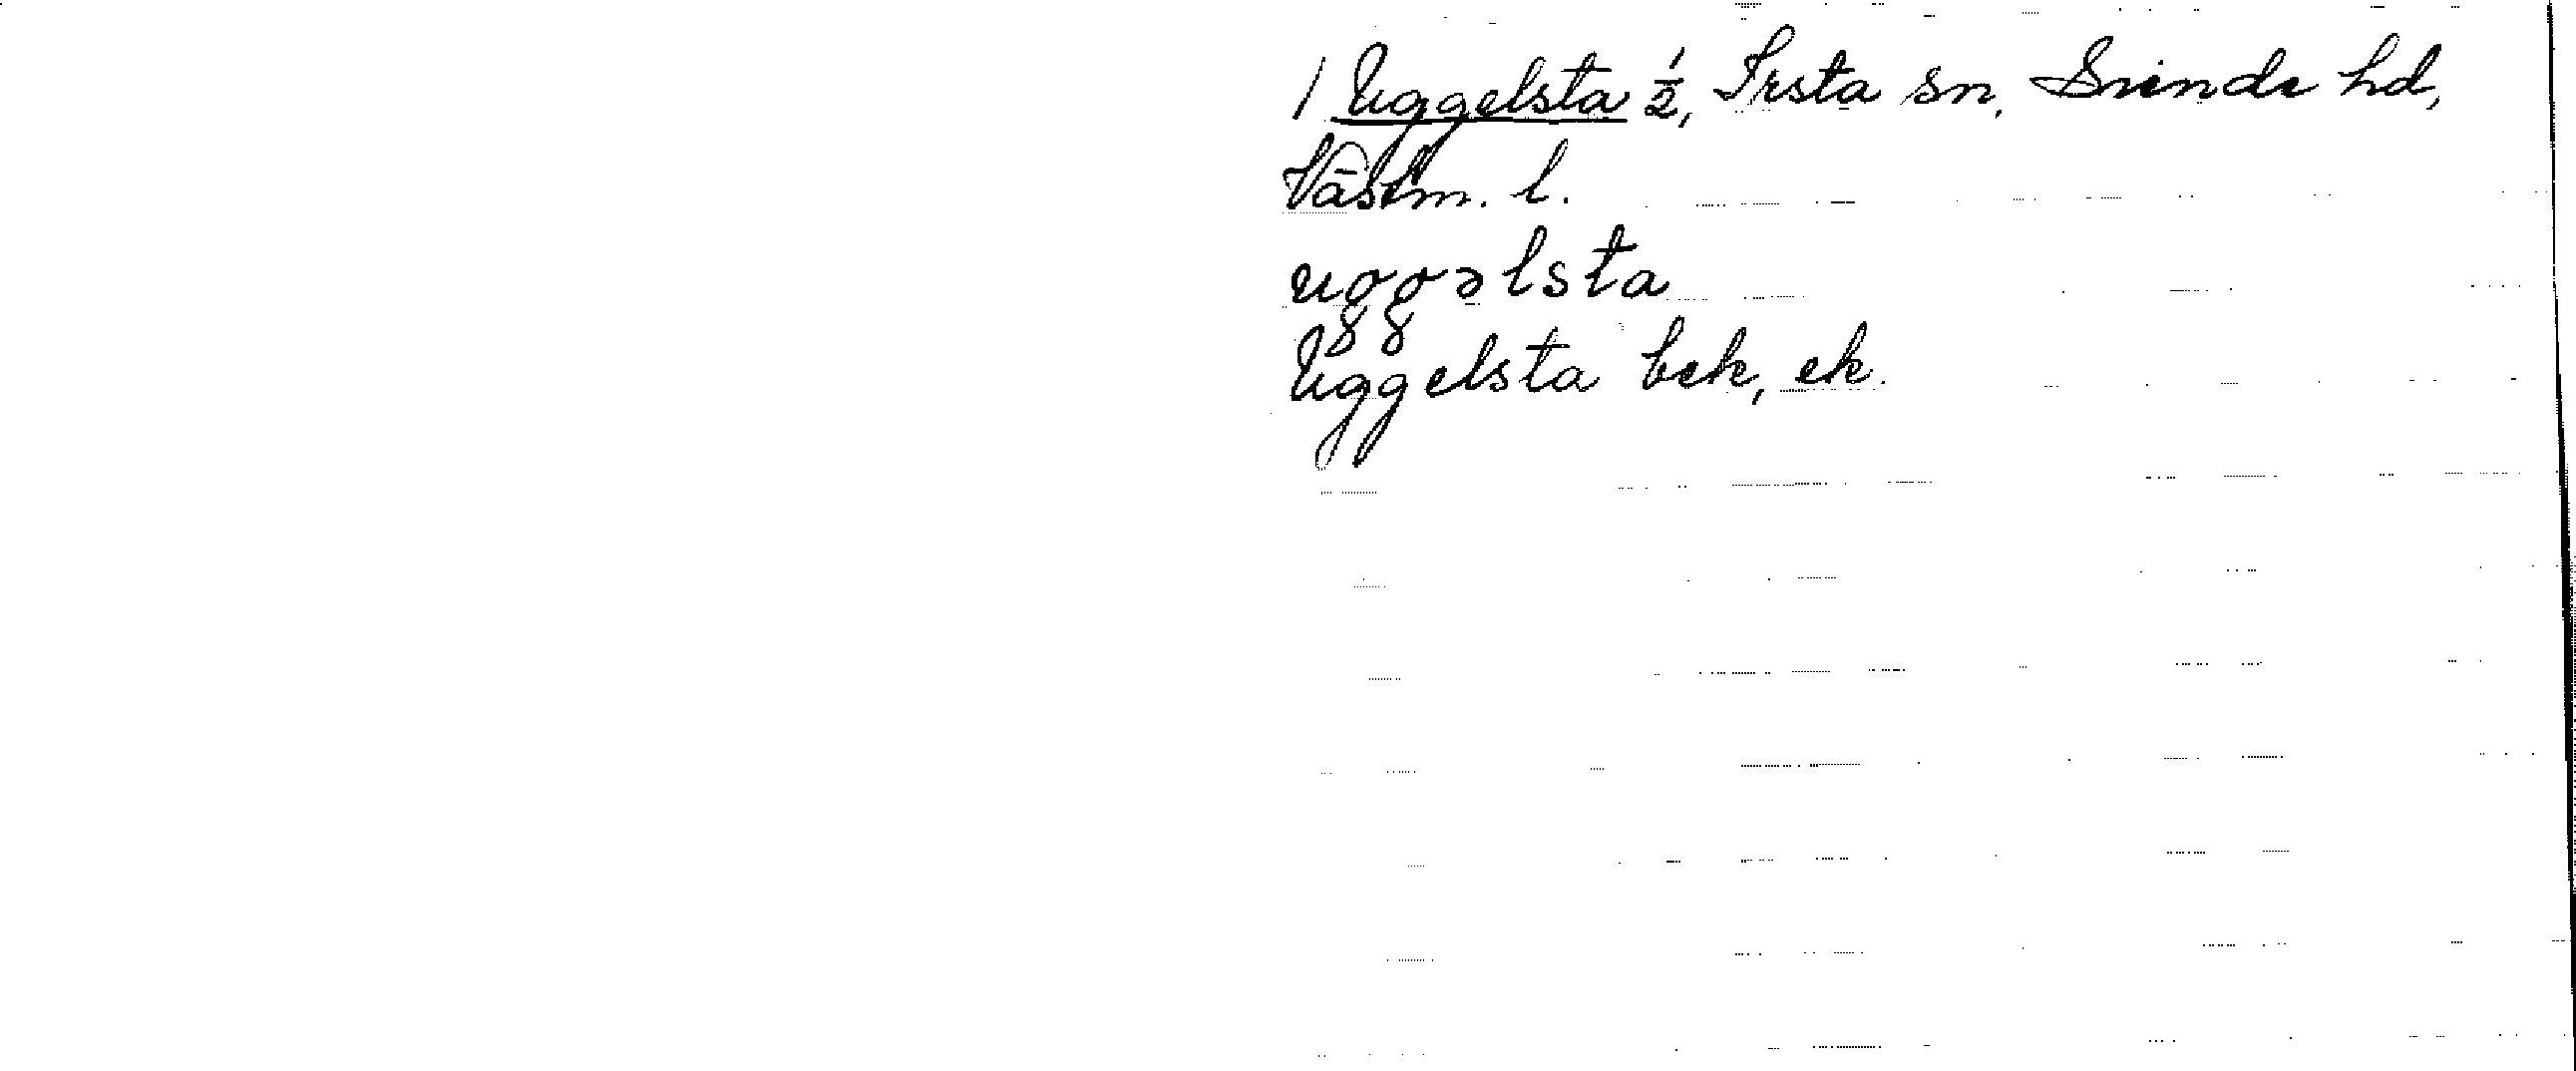 1 Uggelsta 1/2, Irsta sn. Siende hd,
Västm. l.
uggəlsta
Uggelsta bek, ek.